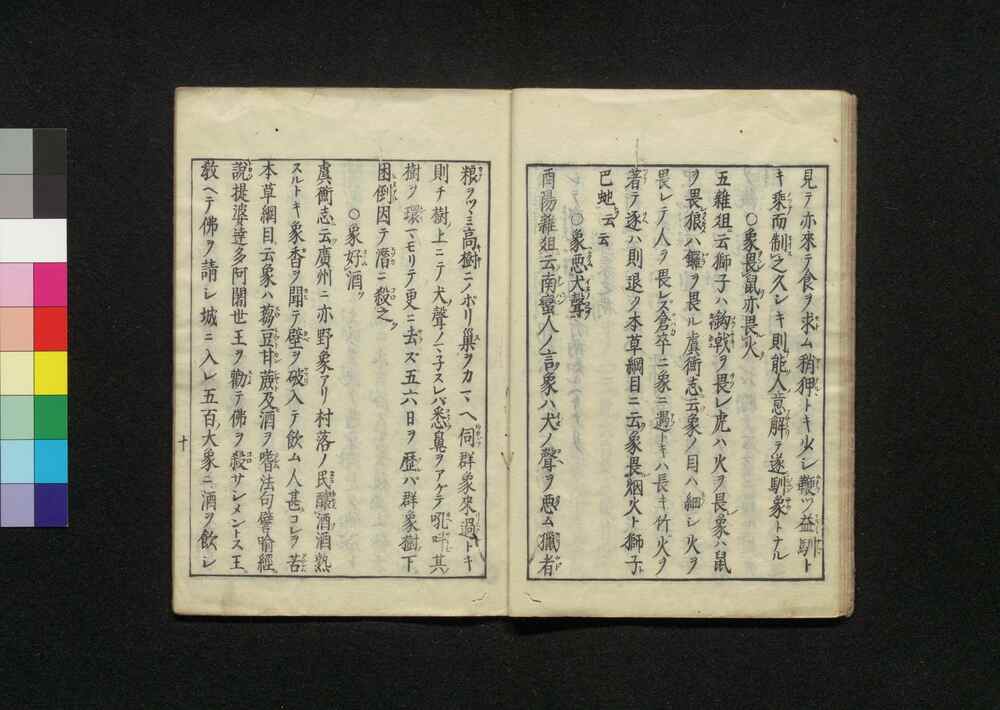 見テ亦來テ食ヲ求ム稍狎トキ少シ鞭ツ益馴ト
キ乗而制之久シキ則能人意解ヲ遂馴象トナル
○象畏鼠亦畏火
五雜俎云獅子ハ鈎戟ヲ畏レ虎ハ火ヲ畏象ハ鼠
ヲ畏狼ハ鑼ヲ畏ル虞衡志云象ノ目ハ細シ火ヲ
畏レテ人ヲ畏レズ倉卒ニ象ニ遇トキハ長キ竹火ヲ
著テ逐ハ則退ク本草綱目ニ云象畏烟火ト獅子
巴虵云云
○象悪犬聲
酉陽雜俎云南蠻人ノ言象ハ犬ノ聲ヲ悪ム獵者
粮ヲツヽミ高樹ニノボリ巣ヲカマヘ伺群象來過トキ
則チ樹上ニテ犬聲ノマ子スレバ悉鼻ヲアゲテ吼叫其
樹ヲ環マモリテ更ニ去ズ五六日ヲ歴バ群象樹下
困倒因テ潛ニ殺之
○象好酒
虞衡志云廣州ニ亦野象アリ村落ノ民釀酒酒熟
スルトキ象香ヲ聞テ壁ヲ破入テ飲ム人甚コレヲ苦
本草綱目云象ハ蒭豆甘蔗及酒ヲ嗜法句譬喻經
說提婆達多阿闍世王ヲ勸テ佛ヲ殺サシメントス王
教ヘテ佛ヲ請シ城ニ入レ五百大象ニ酒ヲ飲シ
十